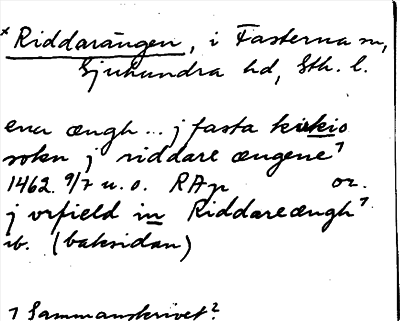 × Riddarängen, i Fasterna sn,
Sjuhundra hd, Sth. l.
ena ængh... j fasta kirkio
sokn j riddare ængene⁷
1462. 9/7 u. o. RAp or.
j vrfield in Riddareængh⁷
ib. (baksidan)
⁷ Sammanskrivet?